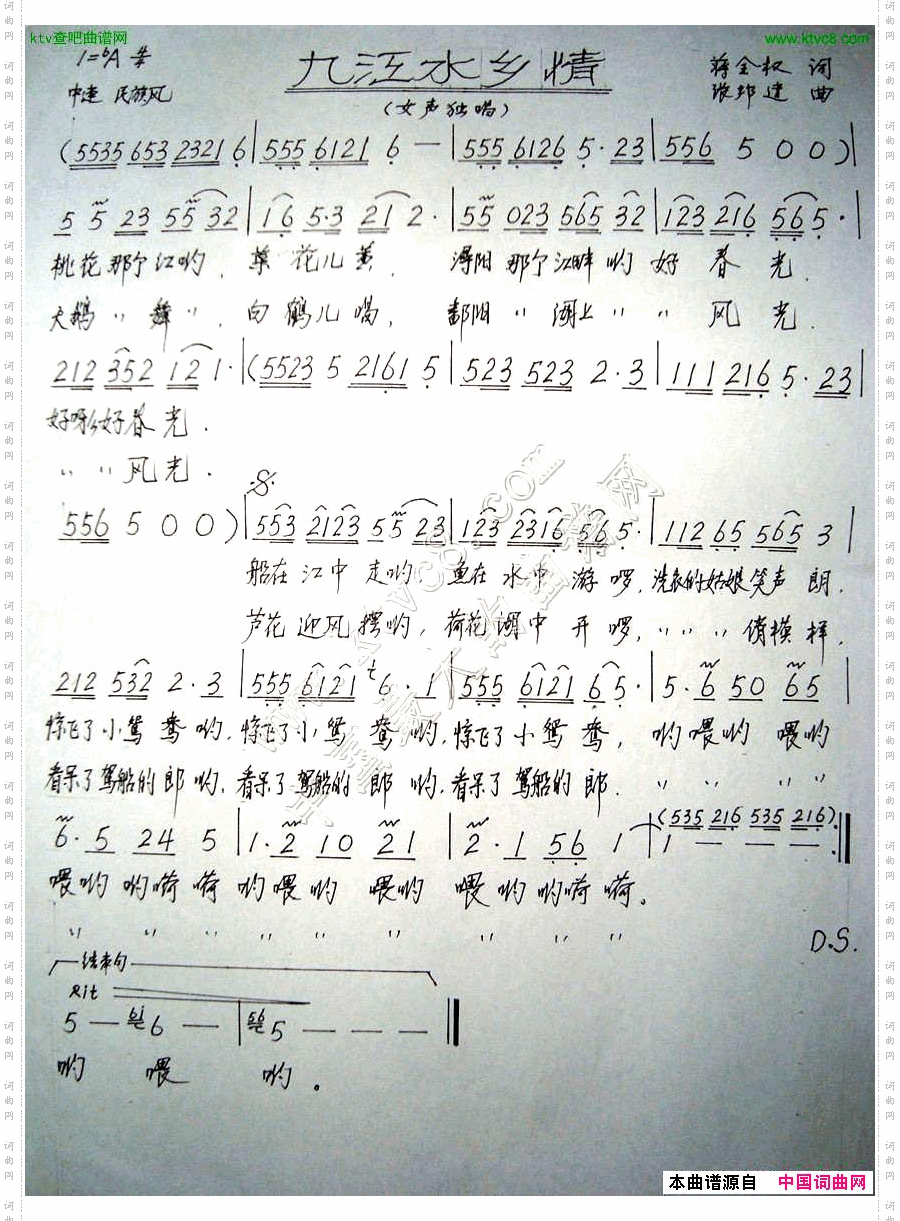 ktv查吧曲谱网
www.ktvc8.com
九江水乡情
(女声独唱)
1=bA
中速 民族风
蒋全权 词
张邦建 曲
(5535 653 2321 6 | 555 6121 6 — | 555 6126 5· 23 | 556 5 0 0 ) |
5 5 23 55 32 | 16 5·3 21 2· | 55 023 565 32 | 123 216 565· |
桃花那个江哟, 草花儿羡, 浔阳那个江畔哟好春光.
天鹅〃舞〃, 白鹤儿唱, 鄱阳〃湖上〃〃风光.
212 352 121· | (5523 5 2161 5 | 523 523 2·3 | 111 216 5·23 |
好呀么好春光.
〃〃风光.
556 5 0 0 ) | 553 2123 55 23 | 123 2316 565· | 112 65 565 3 |
船在江中走哟 鱼在水中游啰, 洗衣的姑娘笑声朗,
芦花迎风摆哟, 荷花湖中开啰, 〃〃〃俏模样,
212 532 2·3 | 555 6121 6·1 | 555 6121 65· | 5·6 50 65 |
惊飞了小鸳鸯哟, 惊飞了小鸳鸯哟, 惊飞了小鸳鸯, 哟喂哟喂哟
看呆了驾船的郎哟, 看呆了驾船的郎哟, 看呆了驾船的郎. 〃〃〃
(535 216 535 216)
6·5 24 5 | 1·2 10 21 | 2·1 56 1 | 1 — — — :‖
喂哟哟嗬嗬哟喂哟喂哟喂哟哟嗬嗬。
〃 〃 〃 〃 〃 〃 〃 〃 〃
D.S.
结束句
Rit
5 — 6 — | 5 — — — ‖
哟喂哟。
本曲谱源自 中国词曲网